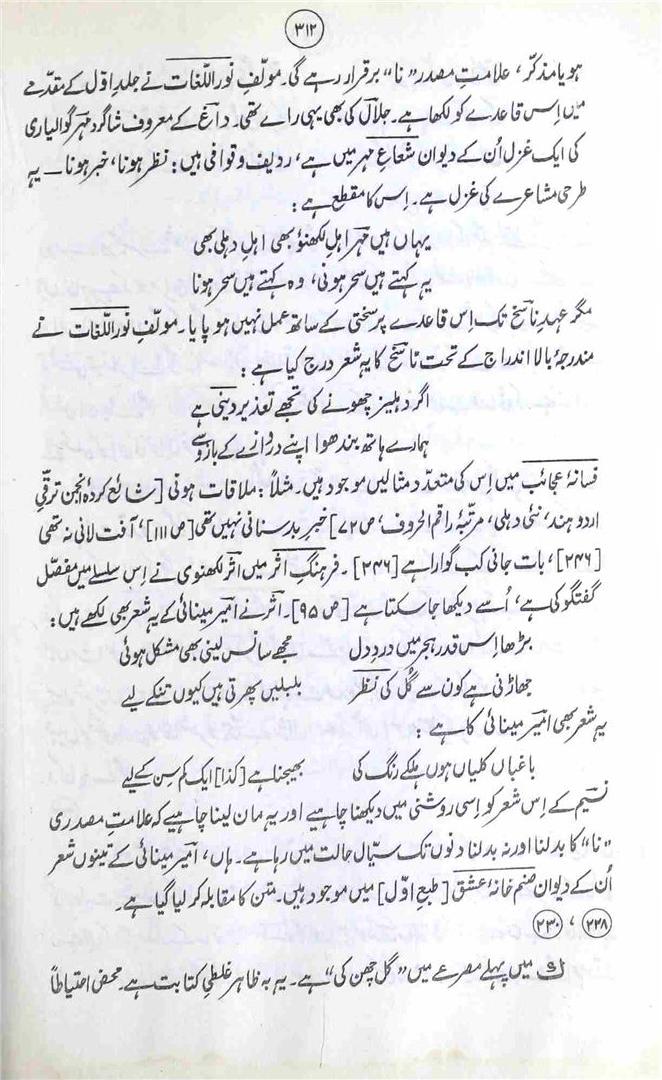 ۳۱۲
ہو یا مذکّر، علامتِ مصدر "نا" برقرار رہے گی۔ مولّفِ نوراللغات نے جلدِ اوّل کے مقدّمے
میں اِس قاعدے کو لکھا ہے۔ جلالؔ کی بھی یہی راے تھی۔ داغؔ کے معروف شاگرد مہرؔ گوالیاری
کی ایک غزل اُن کے دیوان شعاعِ مہر میں ہے، ردیف و قوافی ہیں: نظر ہونا، خبر ہونا — یہ
طرحی مشاعرے کی غزل ہے۔ اِس کا مقطع ہے:
یہاں ہیں مہرؔ اہلِ لکھنؤ بھی اہلِ دہلی بھی
یہ کہتے ہیں سحر ہونی، وہ کہتے ہیں سحر ہونا
مگر عہدِ ناسخؔ تک اِس قاعدے پر سختی کے ساتھ عمل نہیں ہو پایا۔ مولّفِ نوراللغات نے
مندرجۂ بالا اندراج کے تحت ناسخؔ کا یہ شعر درج کیا ہے:
اگر دہلیز چھونے کی تجھے تعذیر دینی ہے
ہمارے ہاتھ بندھوا اپنے دروازے کے بازو سے
فسانۂ عجائب میں اِس کی متعدّد مثالیں موجود ہیں۔ مثلاً: ملاقات ہونی [شائع کردہ انجمن ترقّیِ
اردو ہند، نئی دہلی، مرتّبۂ راقم الحروف، ص ۷۲] خبرِ بد سنانی نہیں تھی [ص ۱۱۱]، آفت لانی نہ تھی
[۲۴۶]، بات جانی کب گوارا ہے [۲۴۶]۔ فرہنگِ اثر میں اثرؔ لکھنوی نے اِس سلسلے میں مفصّل
گفتگو کی ہے، اُسے دیکھا جا سکتا ہے [ص ۹۵]۔ اثرؔ نے امیرؔ مینائی کے یہ شعر بھی لکھے ہیں:
بڑھا اِس قدر ہجر میں دردِ دل مجھے سانس لینی بھی مشکل ہوئی
جھاڑنی ہے کون سے گُل کی نظر بلبلیں پھرتی ہیں کیوں تنکے لیے
یہ شعر بھی امیرؔ مینائی کا ہے:
باغباں کلیاں ہوں ہلکے رنگ کی بھیجنا ہے [کذا] ایک کم سِن کے لیے
نسیمؔ کے اِس شعر کو اِسی روشنی میں دیکھنا چاہیے اور یہ مان لینا چاہیے کہ علامتِ مصدری
"نا" کا بدلنا اور نہ بدلنا دنوں تک سیّال حالت میں رہا ہے۔ ہاں، امیرؔ مینائی کے تینوں شعر
اُن کے دیوان صنم خانۂ عشق [طبعِ اوّل] میں موجود ہیں۔ متن کا مقابلہ کر لیا گیا ہے۔
۲۲۸ ، ۲۳۰
ک میں پہلے مصرعے میں "گل چھن کی" ہے۔ یہ بہ ظاہر غلطیِ کتابت ہے۔ محض احتیاطاً